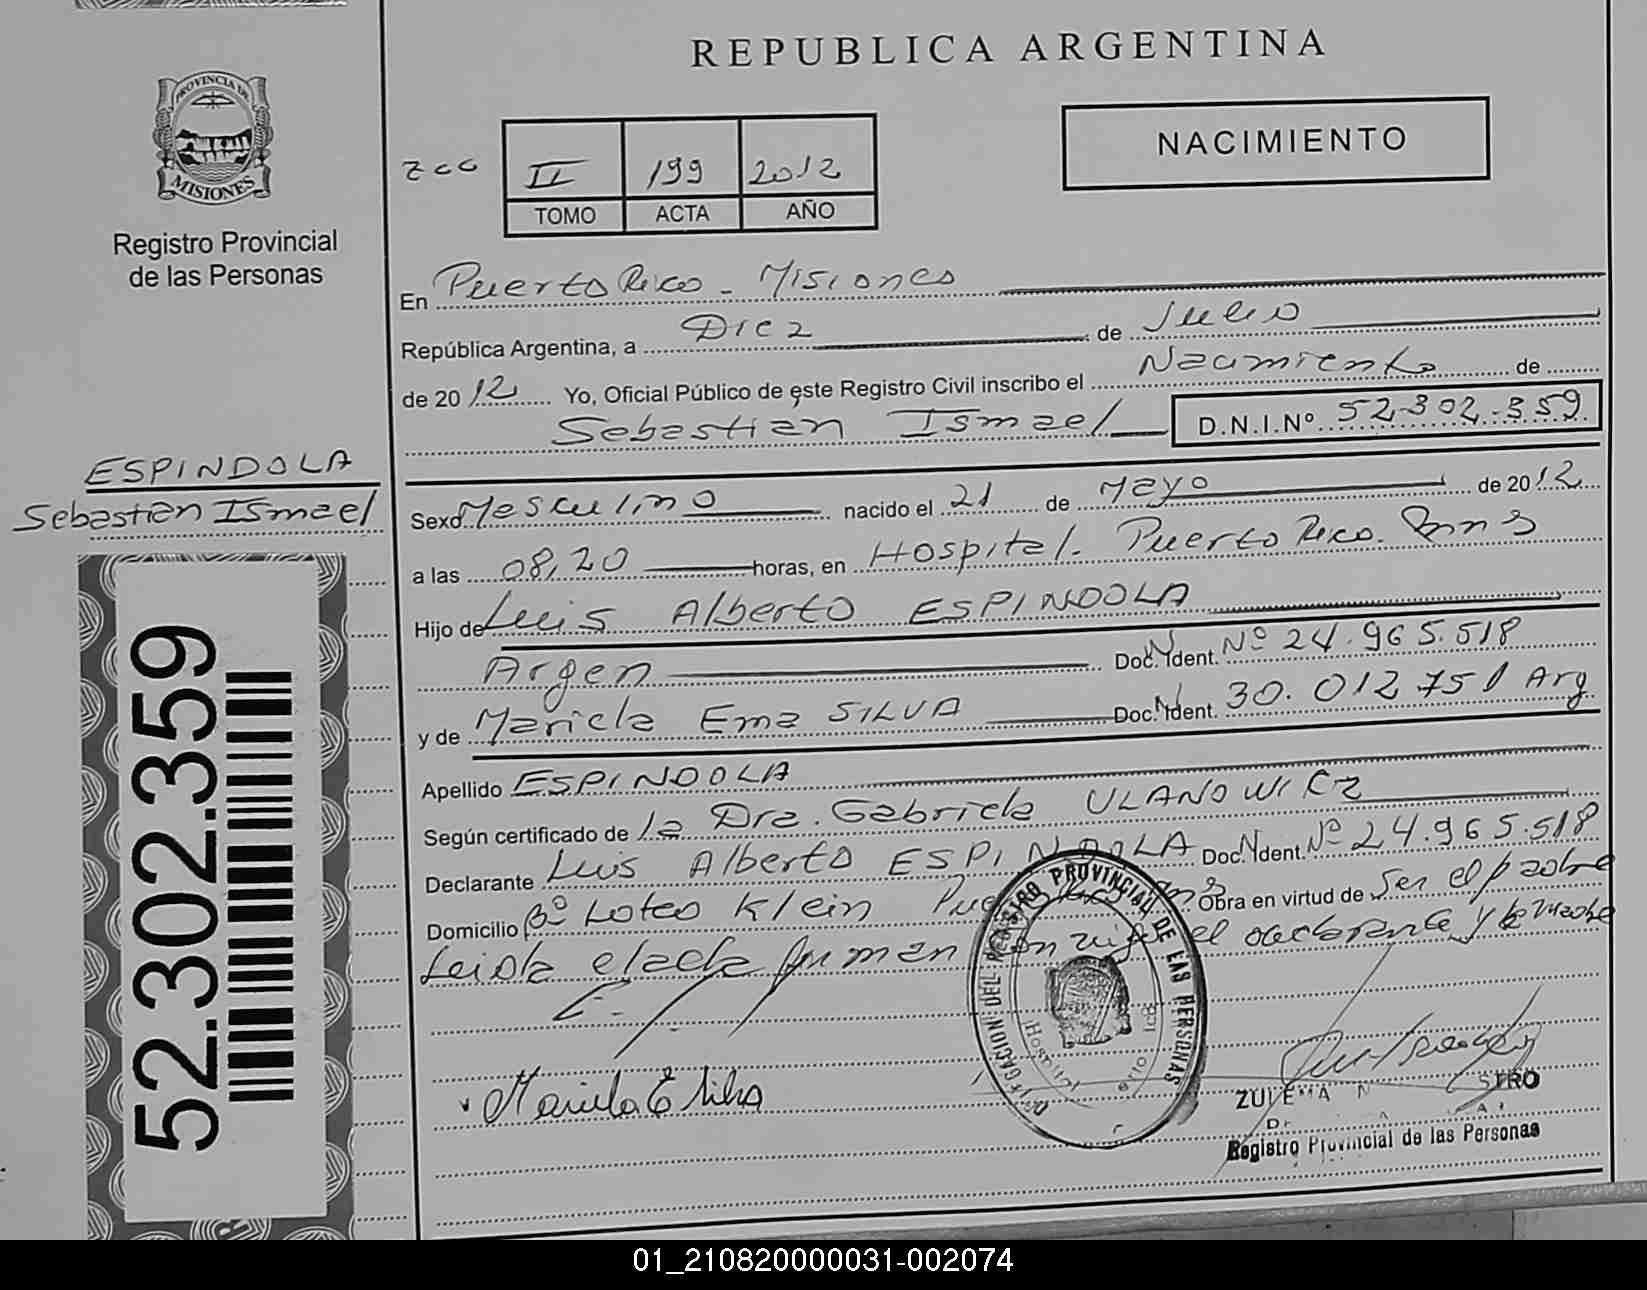 REPUBLICA ARGENTINA
PROVINCIA DE
MISIONES
Registro Provincial
de las Personas
NACIMIENTO
II 199 2012
TOMO ACTA AÑO
En Puerto Rico - Misiones
República Argentina, a Diez de Julio
de 2012 Yo, Oficial Público de este Registro Civil inscribo el Nacimiento de
Sebastián Ismael D.N.I.Nº 52.302.359
ESPINDOLA
Sebastian Ismael
Sexo Masculino nacido el 21 de Mayo de 2012
a las 08,20 horas, en Hospital. Puerto Rico.
Hijo de Luis Alberto ESPINDOLA
Argen Doc. Ident. Nº 24.965.518
y de Mariela Ema SILVA Doc. Ident. 30.012.751 Arg
Apellido ESPINDOLA
Según certificado de la Dra. Gabriela ULANOWICZ
Declarante Luis Alberto ESPINDOLA Doc. Ident. Nº 24.965.518
Domicilio Bº Loteo Klein Obra en virtud de Ser el padre
Leida el acta firman el declarante y la madre
52.302.359
REGISTRO PROVINCIAL DE LAS PERSONAS
Mariela E Silva
Registro Provincial de las Personas
01_210820000031-002074